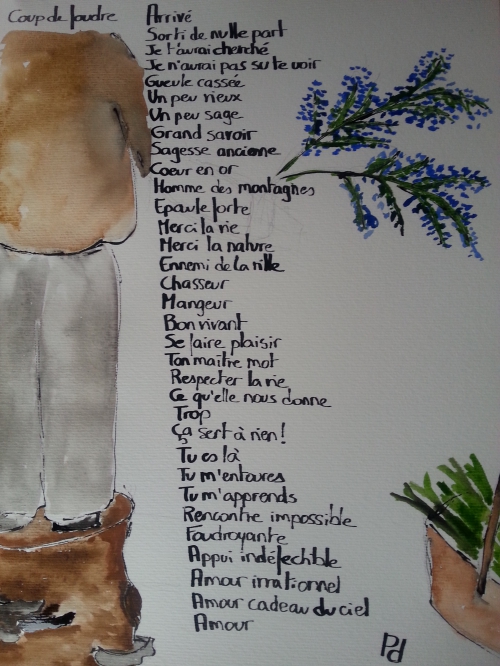 Coup de foudre
Arrivé
Sorti de nulle part
Je t'aurai cherché
Je n'aurai pas su te voir
Gueule cassée
Un peu vieux
Un peu sage
Grand savoir
Sagesse ancienne
Coeur en or
Homme des montagnes
Epaule forte
Merci la vie
Merci la nature
Ennemi de la ville
Chasseur
Mangeur
Bon vivant
Se faire plaisir
Ton maître mot
Respecter la vie
Ce qu'elle nous donne
Trop
Ça sert à rien!
Tu es là
Tu m'entoures
Tu m'apprends
Rencontre impossible
Foudroyante
Appui indéfectible
Amour irrationnel
Amour cadeau du ciel
Amour
Pd